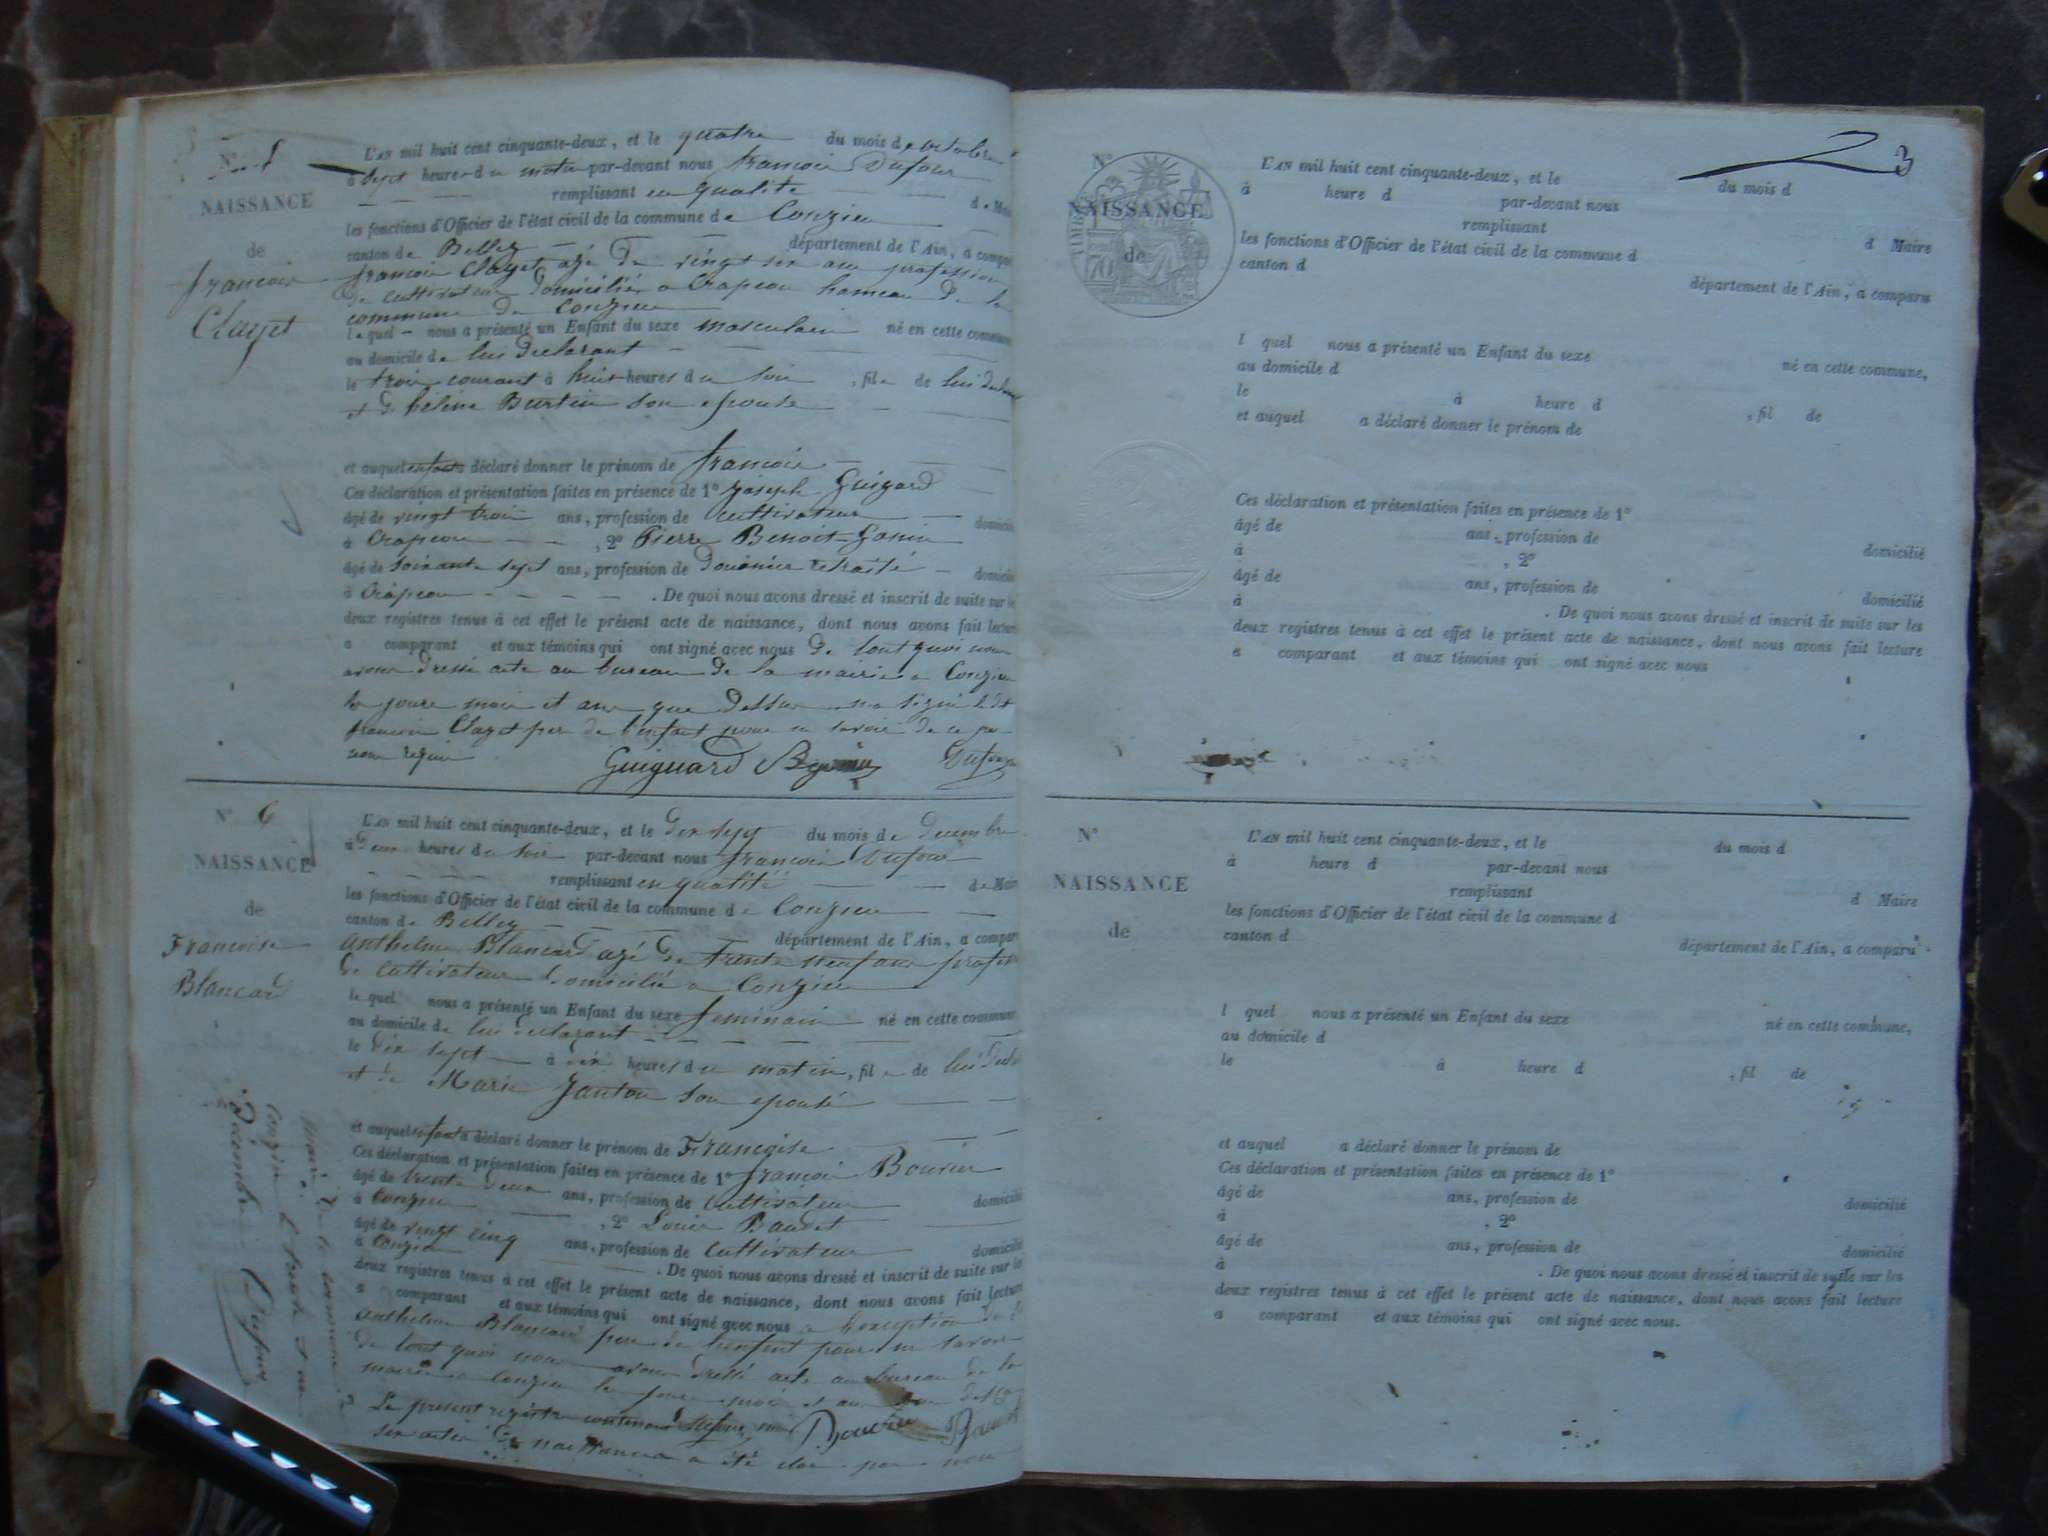 N° 5
NAISSANCE
de
francois
Clayet
L'AN mil huit cent cinquante-deux, et le quatre du mois d'octobre
à sept heures du matin par-devant nous francois Dufour
remplissant en qualite de Mai
les fonctions d'Officier de l'état civil de la commune de Conzieu
canton de Belley département de l'Ain, a compa
francois Clayet agé de vingt six ans profession
de cultivateur domicilié a Crapeou hameau de la
commune de Conzieu
lequel nous a présenté un Enfant du sexe masculain né en cette commune
au domicile de lui declarant
le trois courant à huit heures du soir, fils de lui
et de hélène Burtin son epouse
et auquel enfant a déclaré donner le prénom de francois
Ces déclaration et présentation faites en présence de 1° Joseph Guigard
âgé de vingt trois ans, profession de cultivateur domicili
à Crapeou, 2° Pierre Benoit Gonin
âgé de soixante sept ans, profession de douanier retraité domicili
à Crapeou. De quoi nous avons dressé et inscrit de suite sur les
deux registres tenus à cet effet le présent acte de naissance, dont nous avons fait lecture
a comparant et aux témoins qui ont signé avec nous de tout quoi nous
avons dressé acte au bureau de la mairie a Conzieu
les jours mois et ans que dessus signé ledit
francois Clayet pere de l'enfant pour ne savoir de ce pa
nous requis Guiguard Dufour
N° 6
NAISSANCE
de
Francoise
Blancard
L'AN mil huit cent cinquante-deux, et le dix sept du mois de decembre
à heures du soir par-devant nous francois Dufour
remplissant en qualité de Mair
les fonctions d'Officier de l'état civil de la commune de Conzieu
canton de Belley département de l'Ain, a compar
anthelme Blancard agé de trente neuf ans profes
de cultivateur domicilié a Conzieu
lequel nous a présenté un Enfant du sexe feminain né en cette commune
au domicile de lui declarant
le dix sept à dix heures du matin, fil e de lui
et de Marie Janton son epouse
et auquel enfant a déclaré donner le prénom de Francoise
Ces déclaration et présentation faites en présence de 1° francois Bouvier
âgé de trente deux ans, profession de cultivateur domicilié
à Conzieu, 2° Louis Baudet
âgé de vingt cinq ans, profession de cultivateur domicilié
à Conzieu. De quoi nous avons dressé et inscrit de suite sur les
deux registres tenus à cet effet le présent acte de naissance, dont nous avons fait lecture
a comparant et aux témoins qui ont signé avec nous a l'exception de
anthelme Blancard pere de l'enfant pour ne savoir
de tout quoi nous avons dressé acte au bureau de la
mairie a Conzieu le jour mois et an que dessus
Dufour Bouvier
Le present registre contenant
six actes de naissances a été clos par nous
maire de la commune de
Conzieu le trente et un
Décembre Dufour
3
N°
NAISSANCE
de
TIMBRE
L'AN mil huit cent cinquante-deux, et le du mois d
à heure d par-devant nous
remplissant d Maire
les fonctions d'Officier de l'état civil de la commune d
canton d département de l'Ain, a comparu
l quel nous a présenté un Enfant du sexe né en cette commune,
au domicile d
le à heure d, fil de
et auquel a déclaré donner le prénom de
Ces déclaration et présentation faites en présence de 1°
âgé de ans, profession de domicilié
à, 2°
âgé de ans, profession de domicilié
à. De quoi nous avons dressé et inscrit de suite sur les
deux registres tenus à cet effet le présent acte de naissance, dont nous avons fait lecture
a comparant et aux témoins qui ont signé avec nous
N°
NAISSANCE
de
L'AN mil huit cent cinquante-deux, et le du mois d
à heure d par-devant nous
remplissant d Maire
les fonctions d'Officier de l'état civil de la commune d
canton d département de l'Ain, a comparu
l quel nous a présenté un Enfant du sexe né en cette commune,
au domicile d
le à heure d, fil de
et auquel a déclaré donner le prénom de
Ces déclaration et présentation faites en présence de 1°
âgé de ans, profession de domicilié
à, 2°
âgé de ans, profession de domicilié
à. De quoi nous avons dressé et inscrit de suite sur les
deux registres tenus à cet effet le présent acte de naissance, dont nous avons fait lecture
a comparant et aux témoins qui ont signé avec nous.